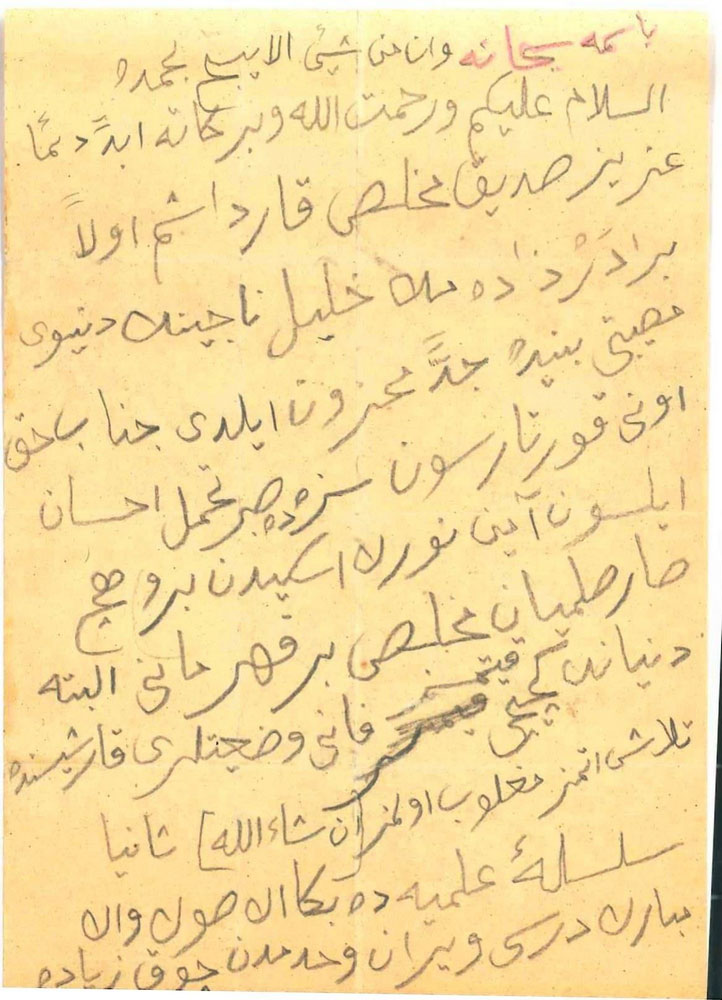 باسمه سبحانه وان من شيئ الا يسبح بحمده
السلام عليكم ورحمت الله وبركاته ابدًا دئمًا
عزيز صديق مخلص قارداشم اولاً
برادرزاده ملا خليل ناجينك دنيوى
مصيبتى بنيده جدًّا محزون ايلدى جناب حق
اونى قورتارسون سزه ده صبر تحمل احسان
ايلسون آمين نورك اسكيدن برو هيچ
صارصلميان مخلص بر قهرمانى البته
دنيانك كچيجى قيمتسز فانى وضعيتلرى قارشيسنده
تلاش اتمز مغلوب اولمز [ان شاء الله] ثانيا
سلسلهٔ علميه ده بكا اك صوك واك
مبارك درسى ويرن وحدمدن چوق زياده